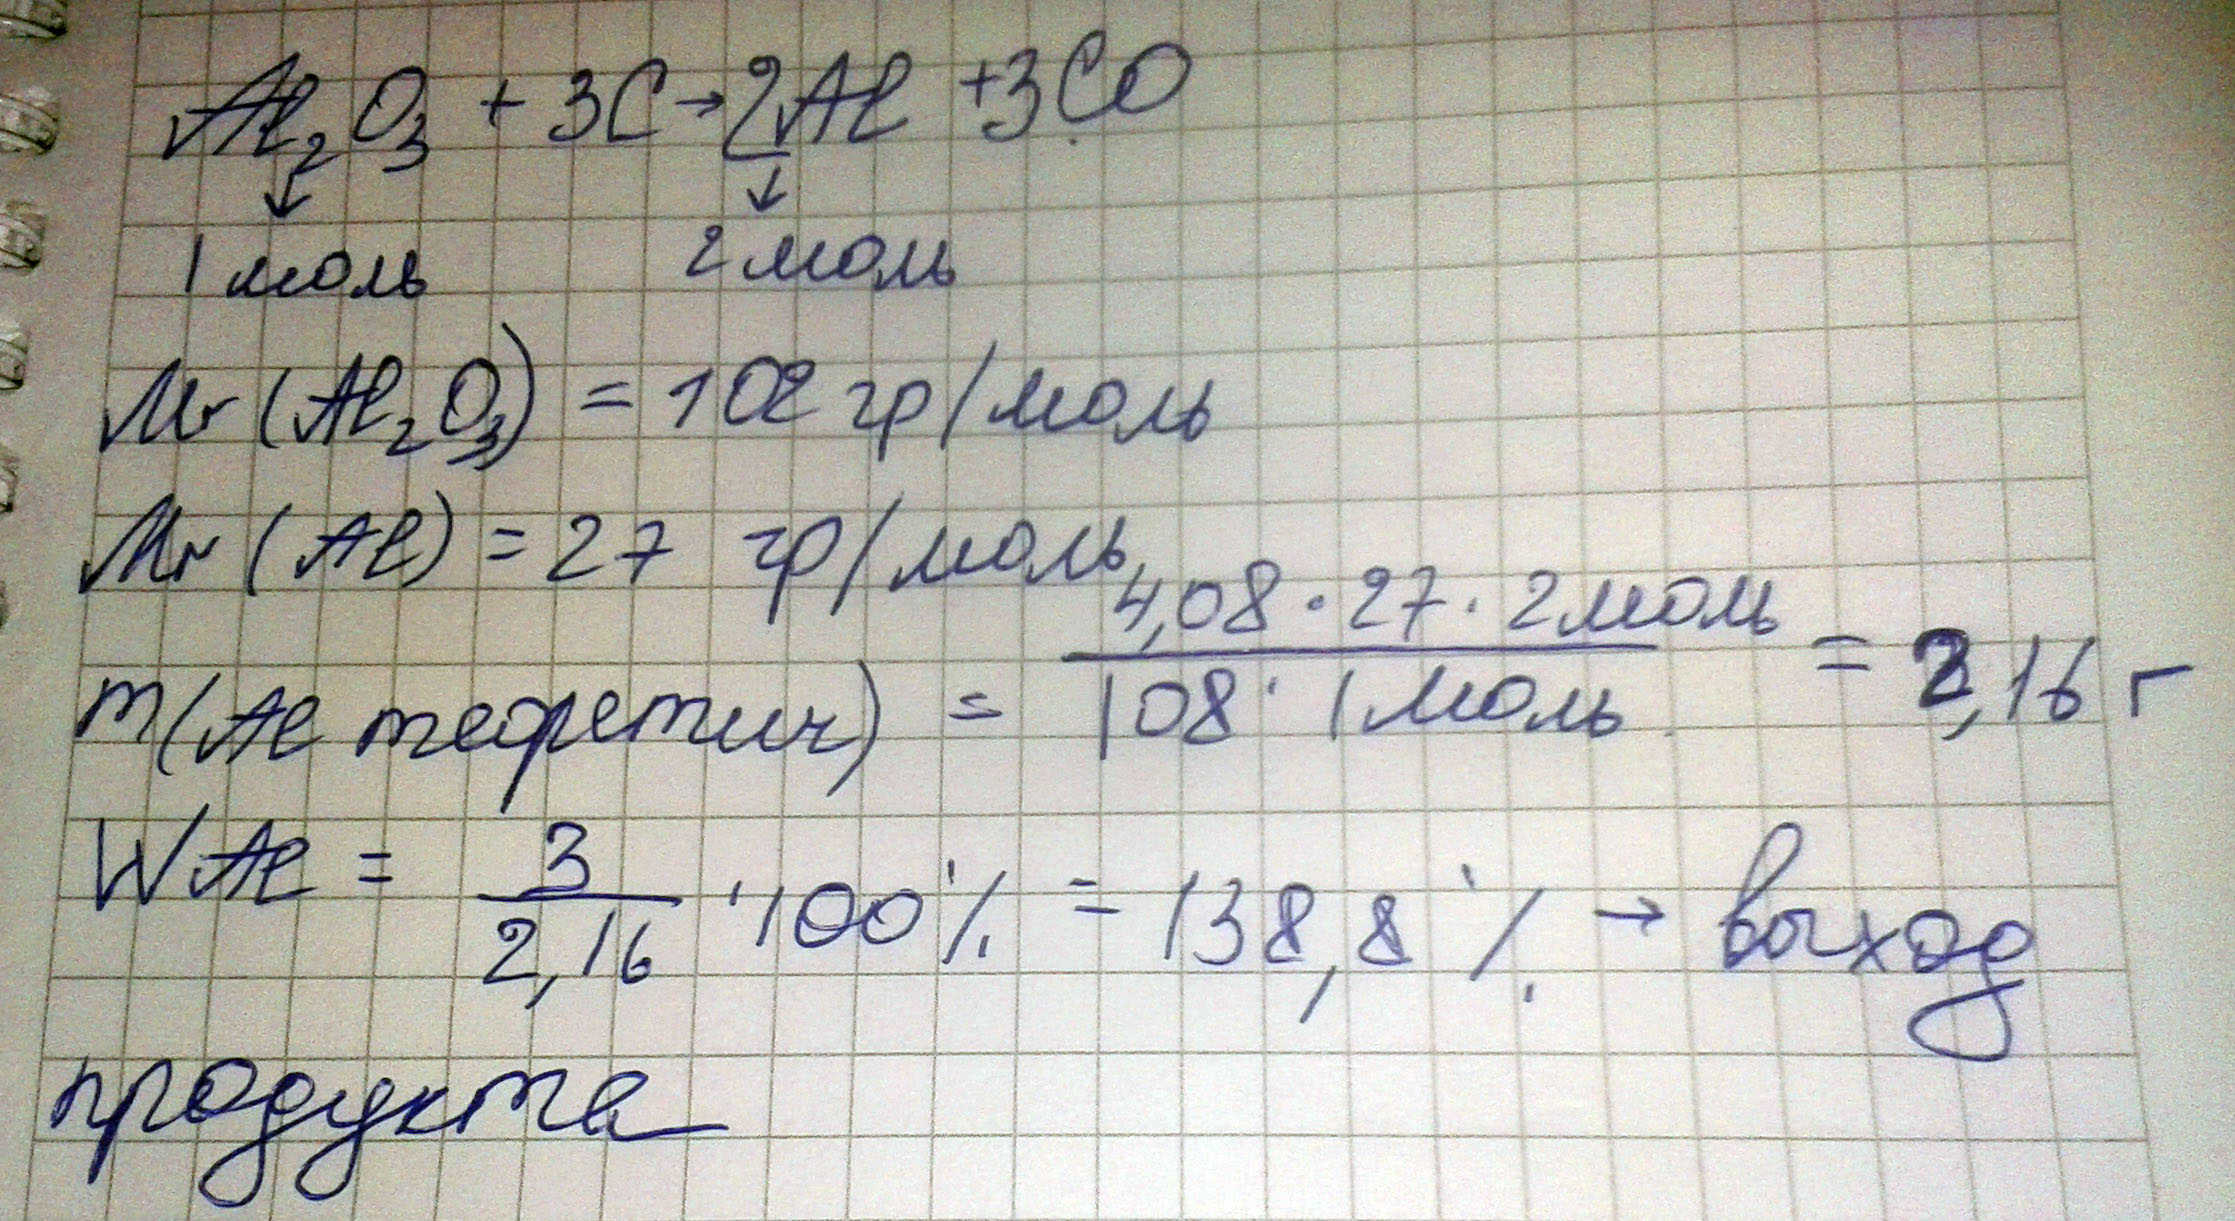 Al₂O₃ + 3C → 2Al + 3CO
↓ ↓
1 моль 2 моль
Mr (Al₂O₃) = 102 гр/моль
Mr (Al) = 27 гр/моль
m(Al теоретич) = 4,08 · 27 · 2 моль / 108 · 1 моль = 2,16 г
W Al = 3 / 2,16 · 100 % = 138,8 % → выход
продукта